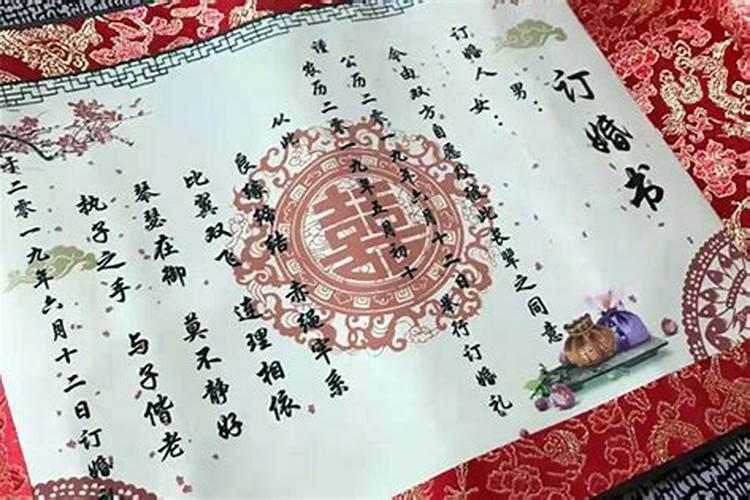 订婚书
男：
订婚人女：
今由双方自愿及彼此长辈之同意
公历二零一九年六月十二日举行订婚礼
谨农历二零一九年五月初十
从此
良缘缔结 赤绳牢系
比翼双飞 连理相依
琴瑟在御 莫不静好
执子之手 与子偕老
于二零一九年六月十二日订婚